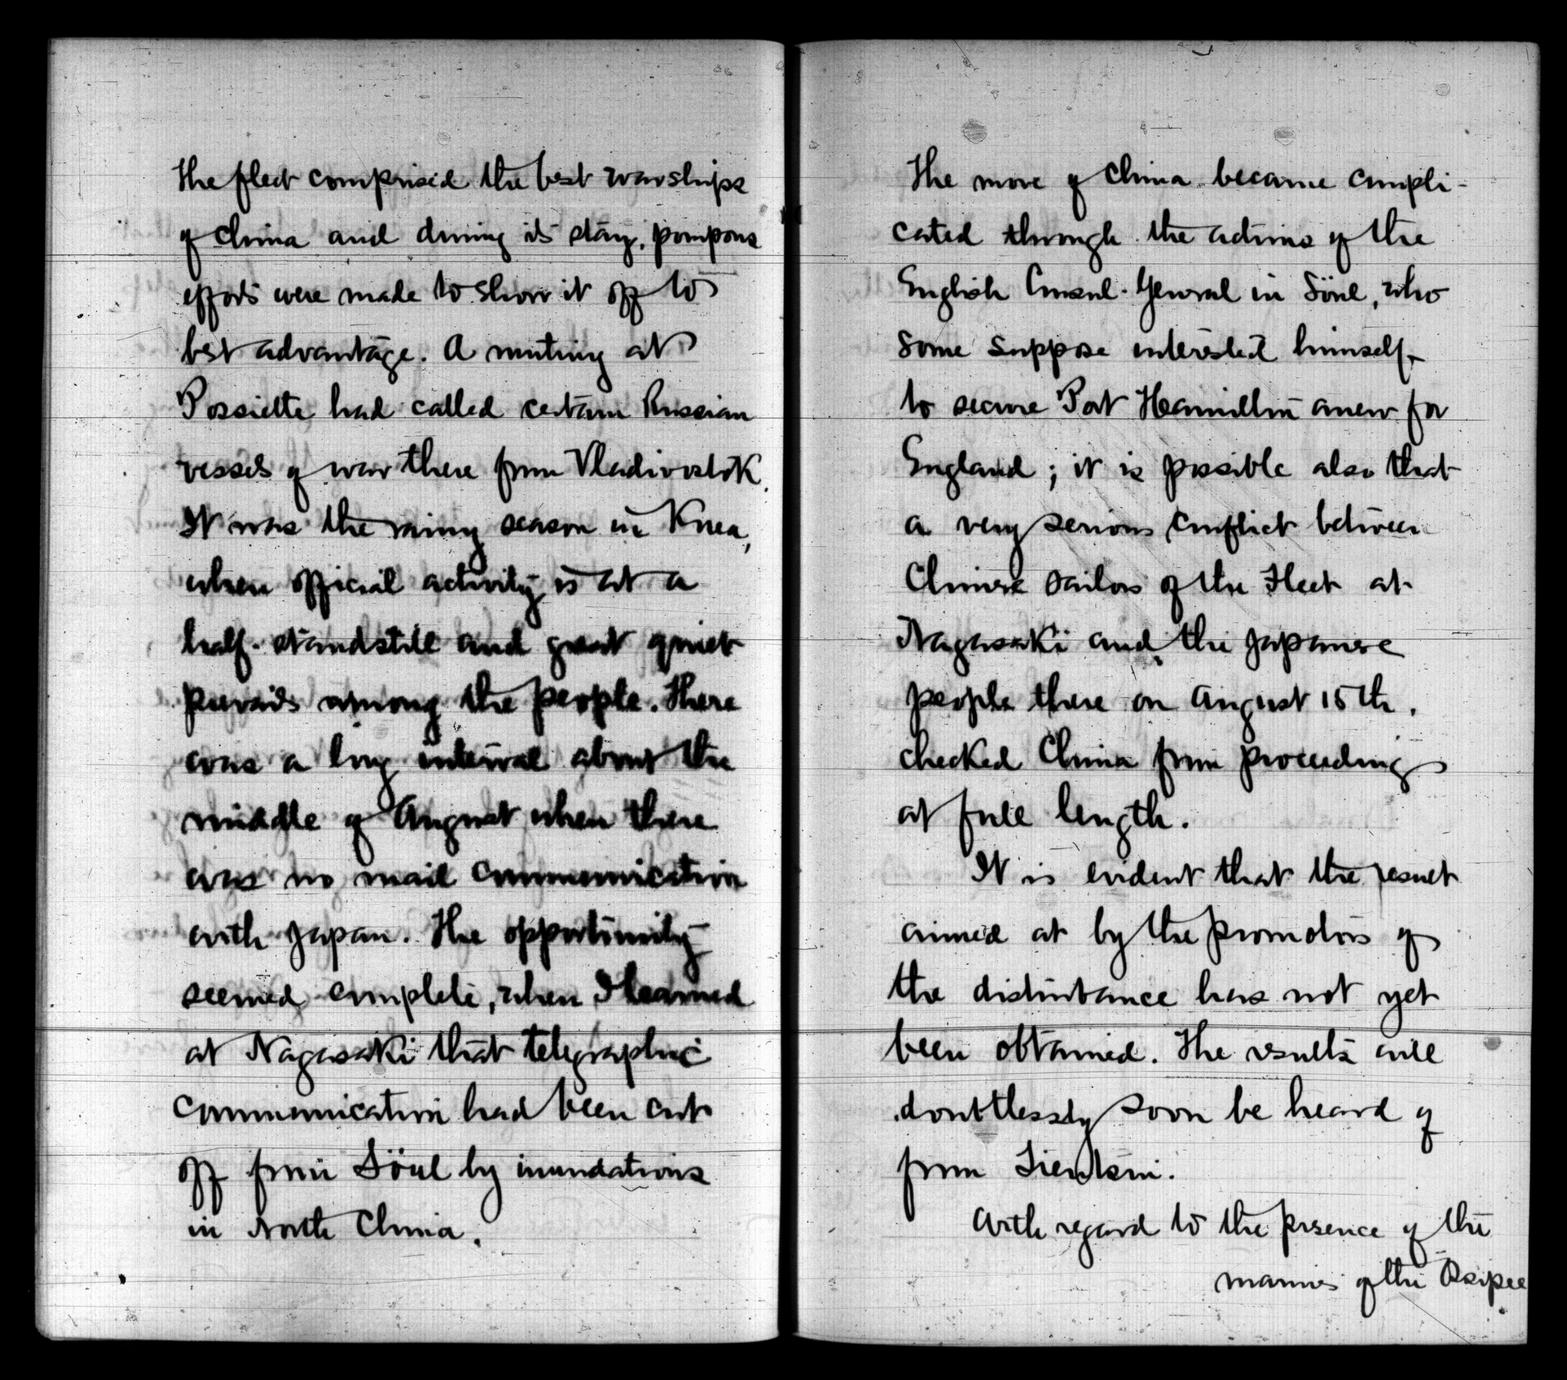 The fleet comprised the best warships
of China and during its stay, pompous
efforts were made to show it off to
best advantage. A meeting at
Possiette had called certain Russian
vessels of war there from Vladivostok.
It was the rainy season in Korea,
when official activity is at a
half-standstill and great quiet
prevails among the people. There
was a long interval about the
middle of August when there
was no mail communication
with Japan. The opportunity
seemed complete, when I learned
at Nagasaki that telegraphic
communication had been cut
off from Söul by inundations
in North China.
The move of China became compli-
cated through the actions of the
English Consul-General in Söul, who
some suppose interested himself
to secure Port Hamilton anew for
England; it is possible also that
a very serious conflict between
Chinese sailors of the Fleet at
Nagasaki and the Japanese
people there on August 15th,
checked China from proceeding
at full length.
It is evident that the result
aimed at by the promotors of
the disturbance has not yet
been obtained. The results will
doubtlessly soon be heard of
from Tientsin.
With regard to the presence of the
marines of the Ossipee